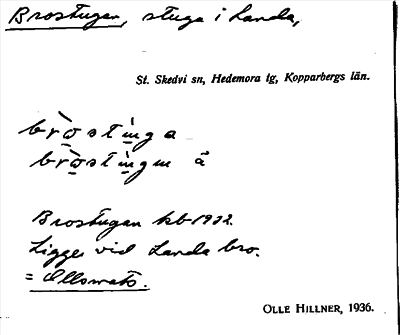 Brostugan, stuga i Landa,
St. Skedvi sn, Hedemora tg, Kopparbergs län.
bròstinga
bròstingen å
Brostugan kb 1932.
Ligger vid Landa bro.
= Ollsmats.
OLLE HILLNER, 1936.